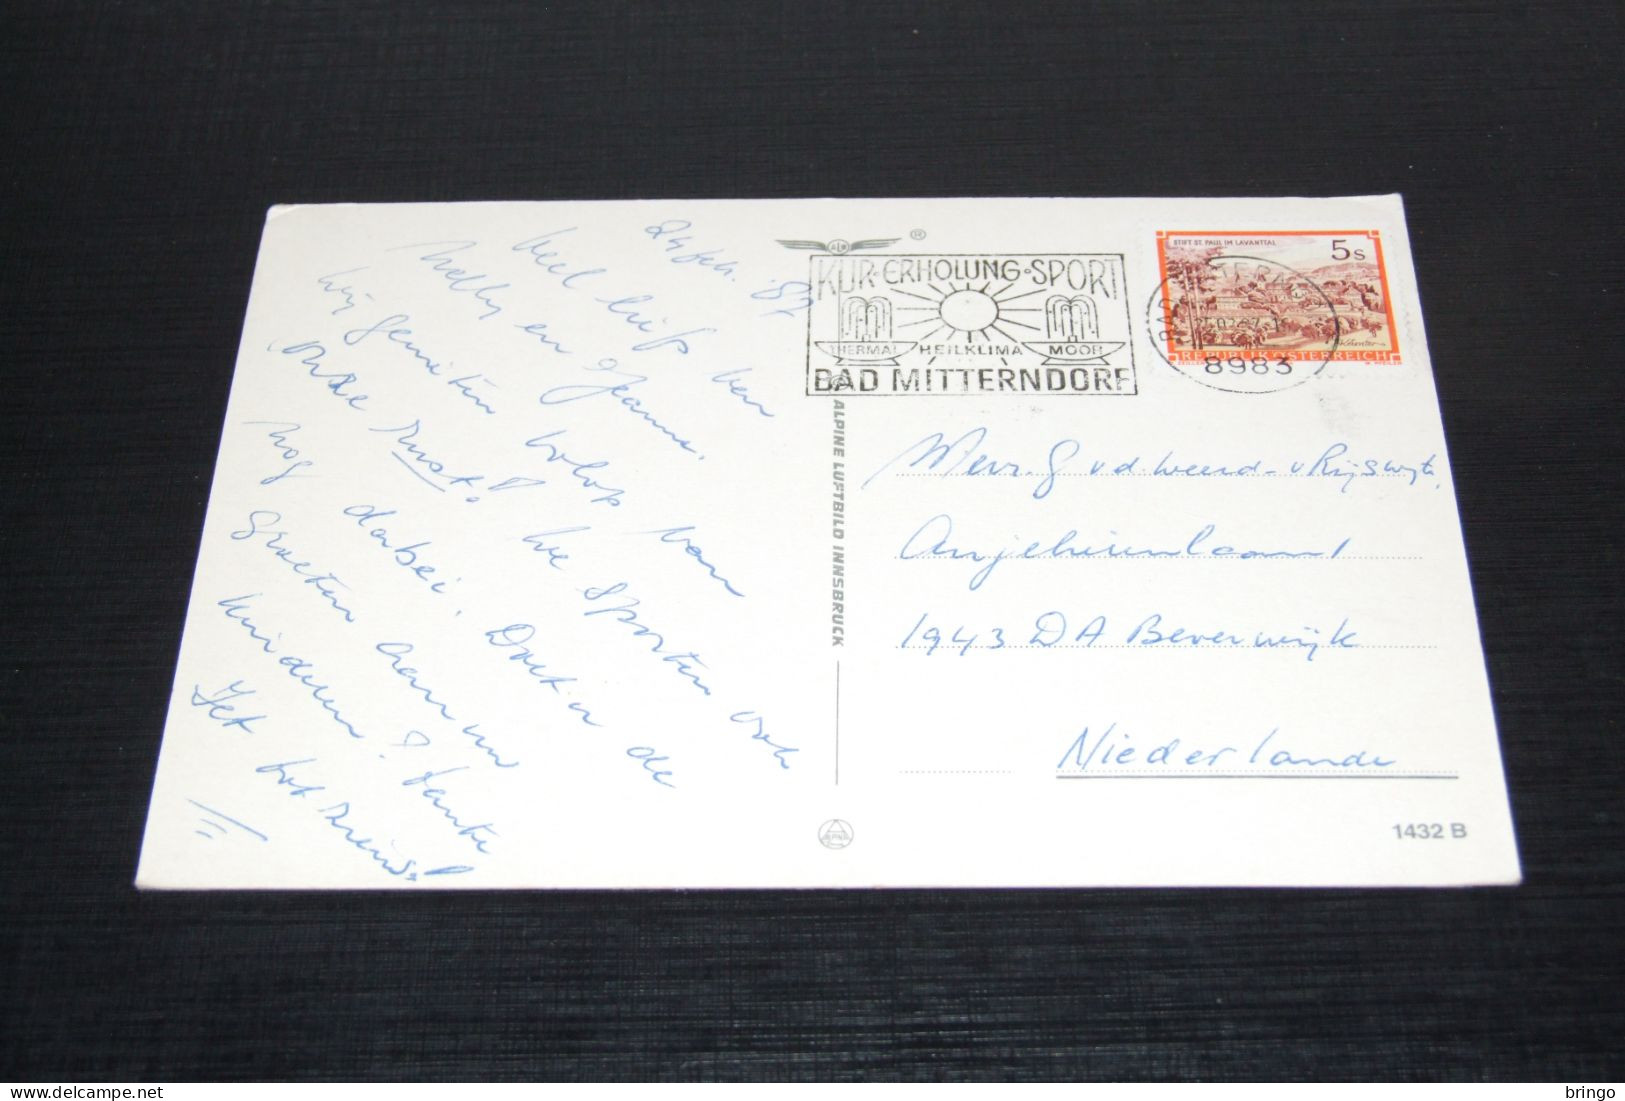 24 feb. '87
Veel liefs van
Nelly en Jeanne.
Wij genieten volop van
onze rust. We sporten ook
nog dabei. Doet u de
groeten aan uw
kinderen? tante
Jet tot
KUR·ERHOLUNG·SPORT
THERMAL HEILKLIMA MOOR
BAD MITTERNDORF
STIFT ST. PAUL IM LAVANTTAL
5 S
REPUBLIK ÖSTERREICH
8983
ALPINE LUFTBILD INNSBRUCK
Mevr. G v.d. Weerd - v Rijswijk
Anjelierenlaan 1
1943 DA Beverwijk
Niederlande
1432 B
https://www.delcampe.net
bringo